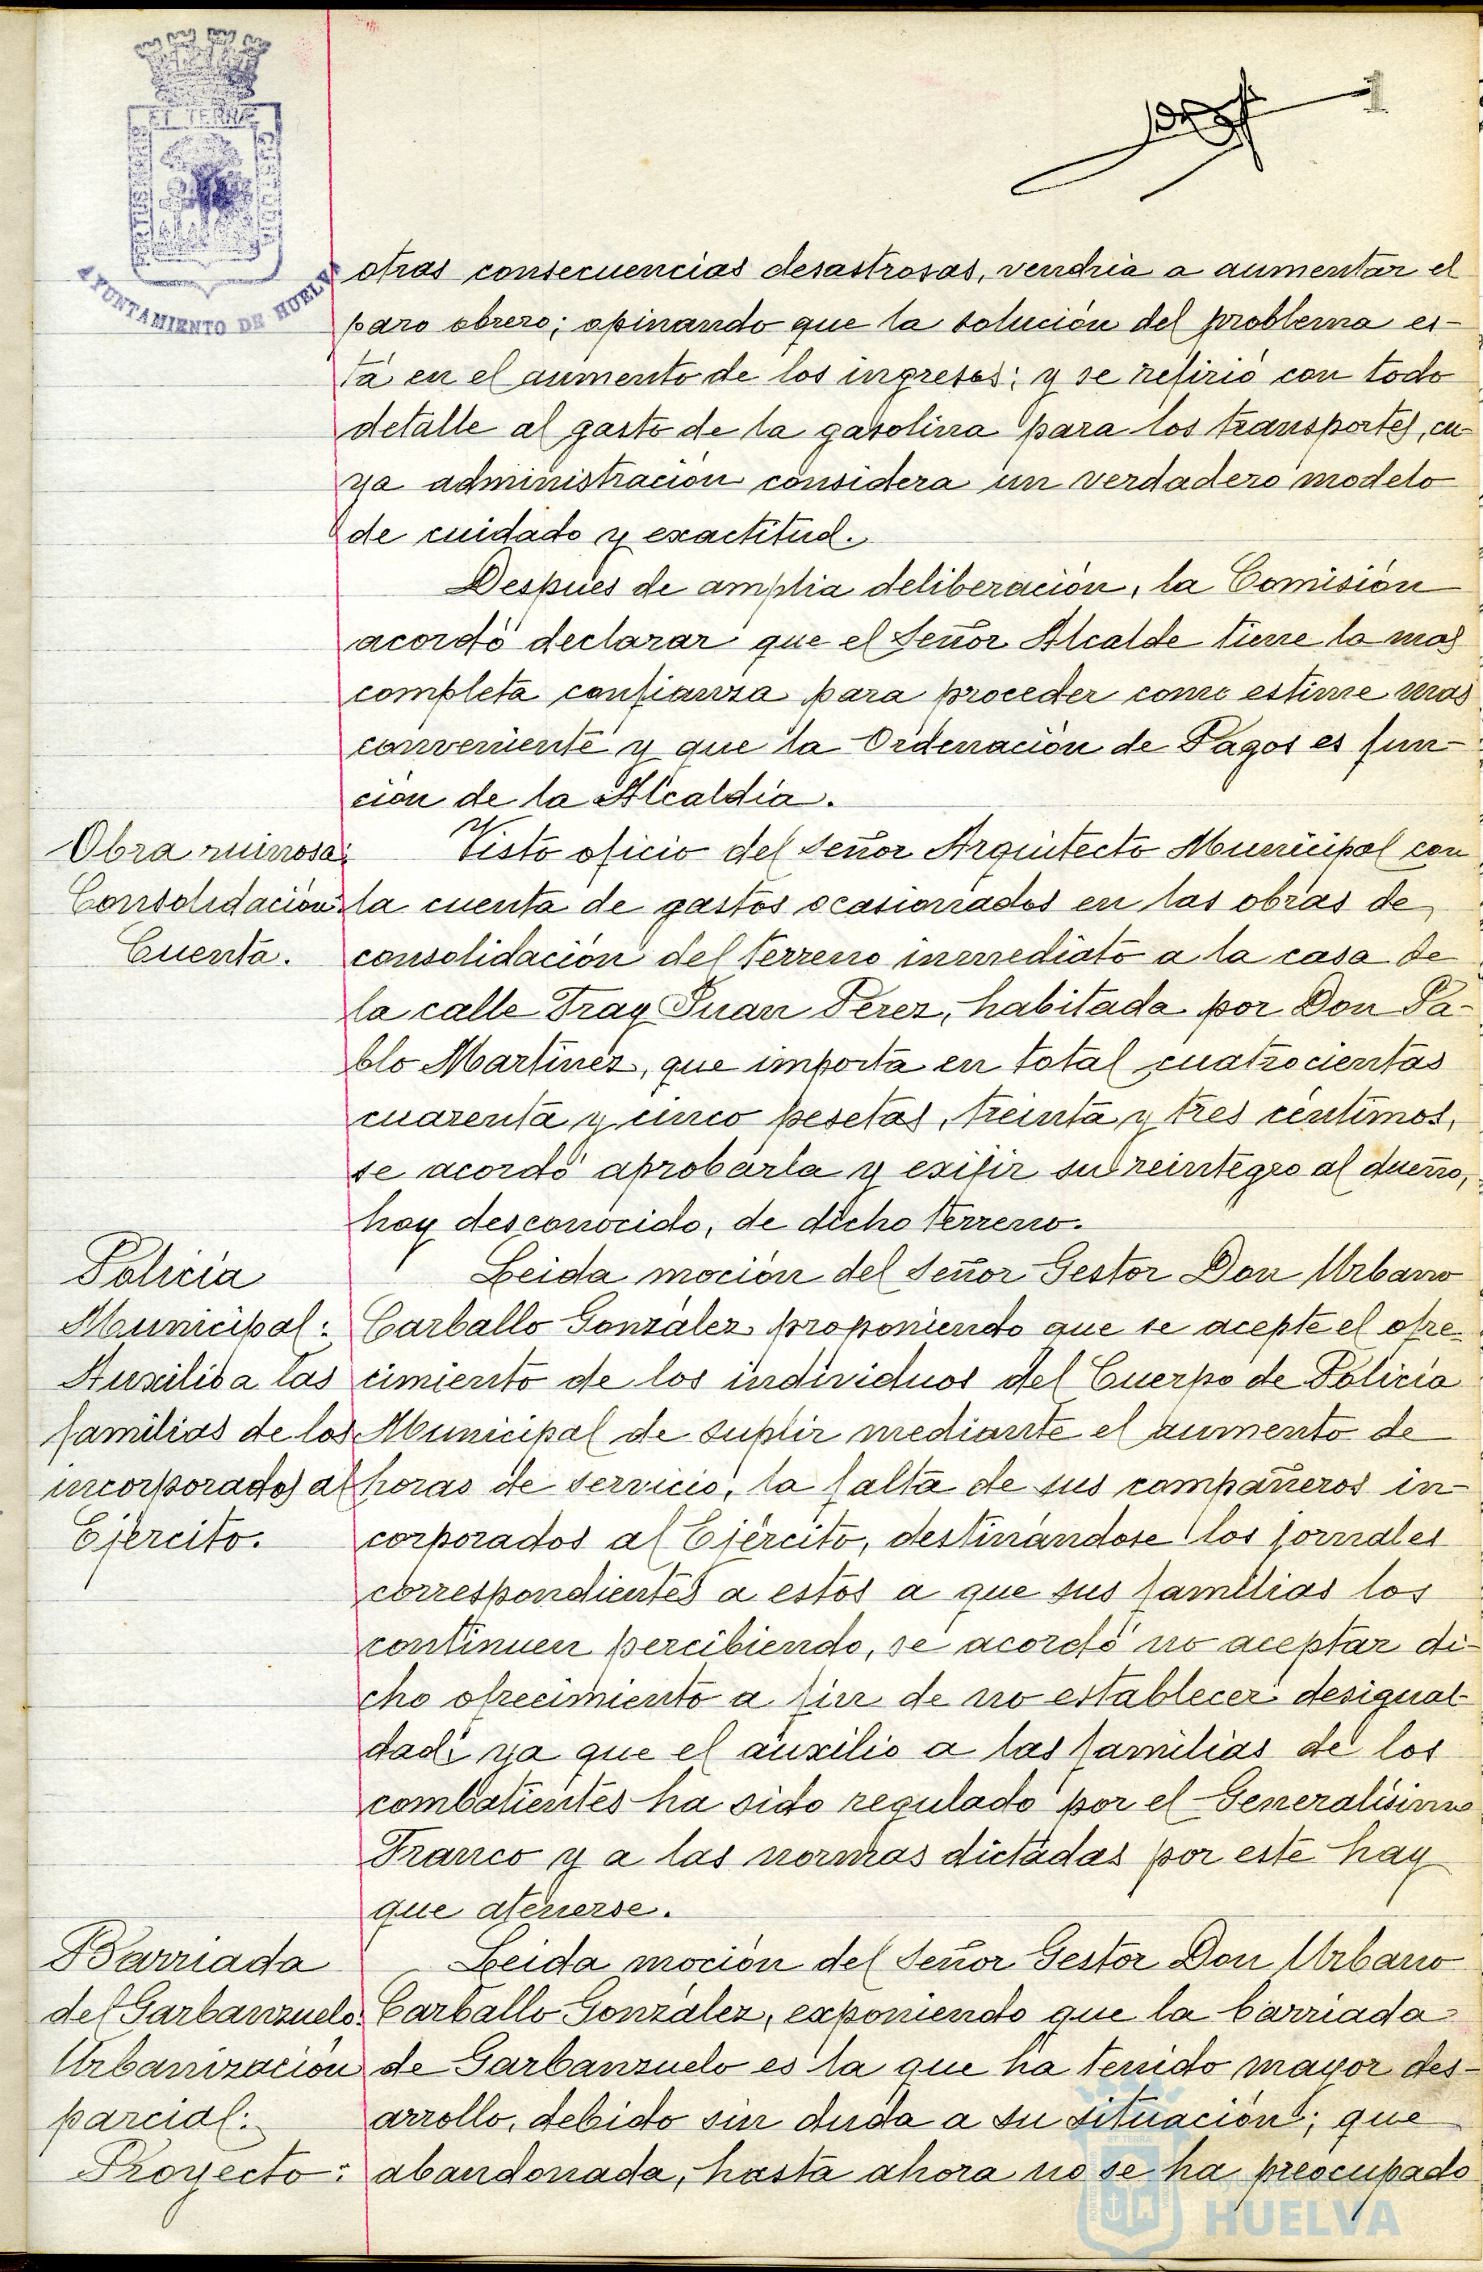 1
ET TERRÆ
AYUNTAMIENTO DE HUELVA
otras consecuencias desastrosas, vendria a aumentar el
paro obrero; opinando que la solución del problema es-
tá en el aumento de los ingresos; y se refirió con todo
detalle al gasto de la gasolina para los transportes, cu-
ya administración considera un verdadero modelo
de cuidado y exactitud.
Despues de amplia deliberación, la Comisión
acordó declarar que el Señor Alcalde tiene la mas
completa confianza para proceder como estime mas
conveniente y que la Ordenación de Pagos es fun-
ción de la Alcaldía.
Obra ruinosa:
Consolidación:
Cuenta.
Visto oficio del Señor Arquitecto Municipal con
la cuenta de gastos ocasionados en las obras de
consolidación del terreno inmediato a la casa de
la calle Fray Juan Perez, habitada por Don Pa-
blo Martinez, que importa en total cuatrocientas
cuarenta y cinco pesetas, treinta y tres céntimos,
se acordó aprobarla y exijir su reintegro al dueño,
hoy desconocido, de dicho terreno.
Policía
Municipal:
Auxilio a las
familias de los
incorporados al
Ejercito.
Leida moción del Señor Gestor Don Urbano
Carballo González proponiendo que se acepte el ofre-
cimiento de los individuos del Cuerpo de Policía
Municipal de suplir mediante el aumento de
horas de servicio, la falta de sus compañeros in-
corporados al Ejército, destinándose los jornales
correspondientes a estos a que sus familias los
continuen percibiendo, se acordó no aceptar di-
cho ofrecimiento a fin de no establecer desigual-
dad; ya que el auxilio a las familias de los
combatientes ha sido regulado por el Generalísimo
Franco y a las normas dictadas por este hay
que atenerse.
Barriada
del Garbanzuelo
Urbanización
parcial:
Proyecto:
Leida moción del Señor Gestor Don Urbano
Carballo González, exponiendo que la barriada
de Garbanzuelo es la que ha tenido mayor des-
arrollo, debido sin duda a su situación; que
abandonada, hasta ahora no se ha preocupado
Ayuntamiento de
HUELVA